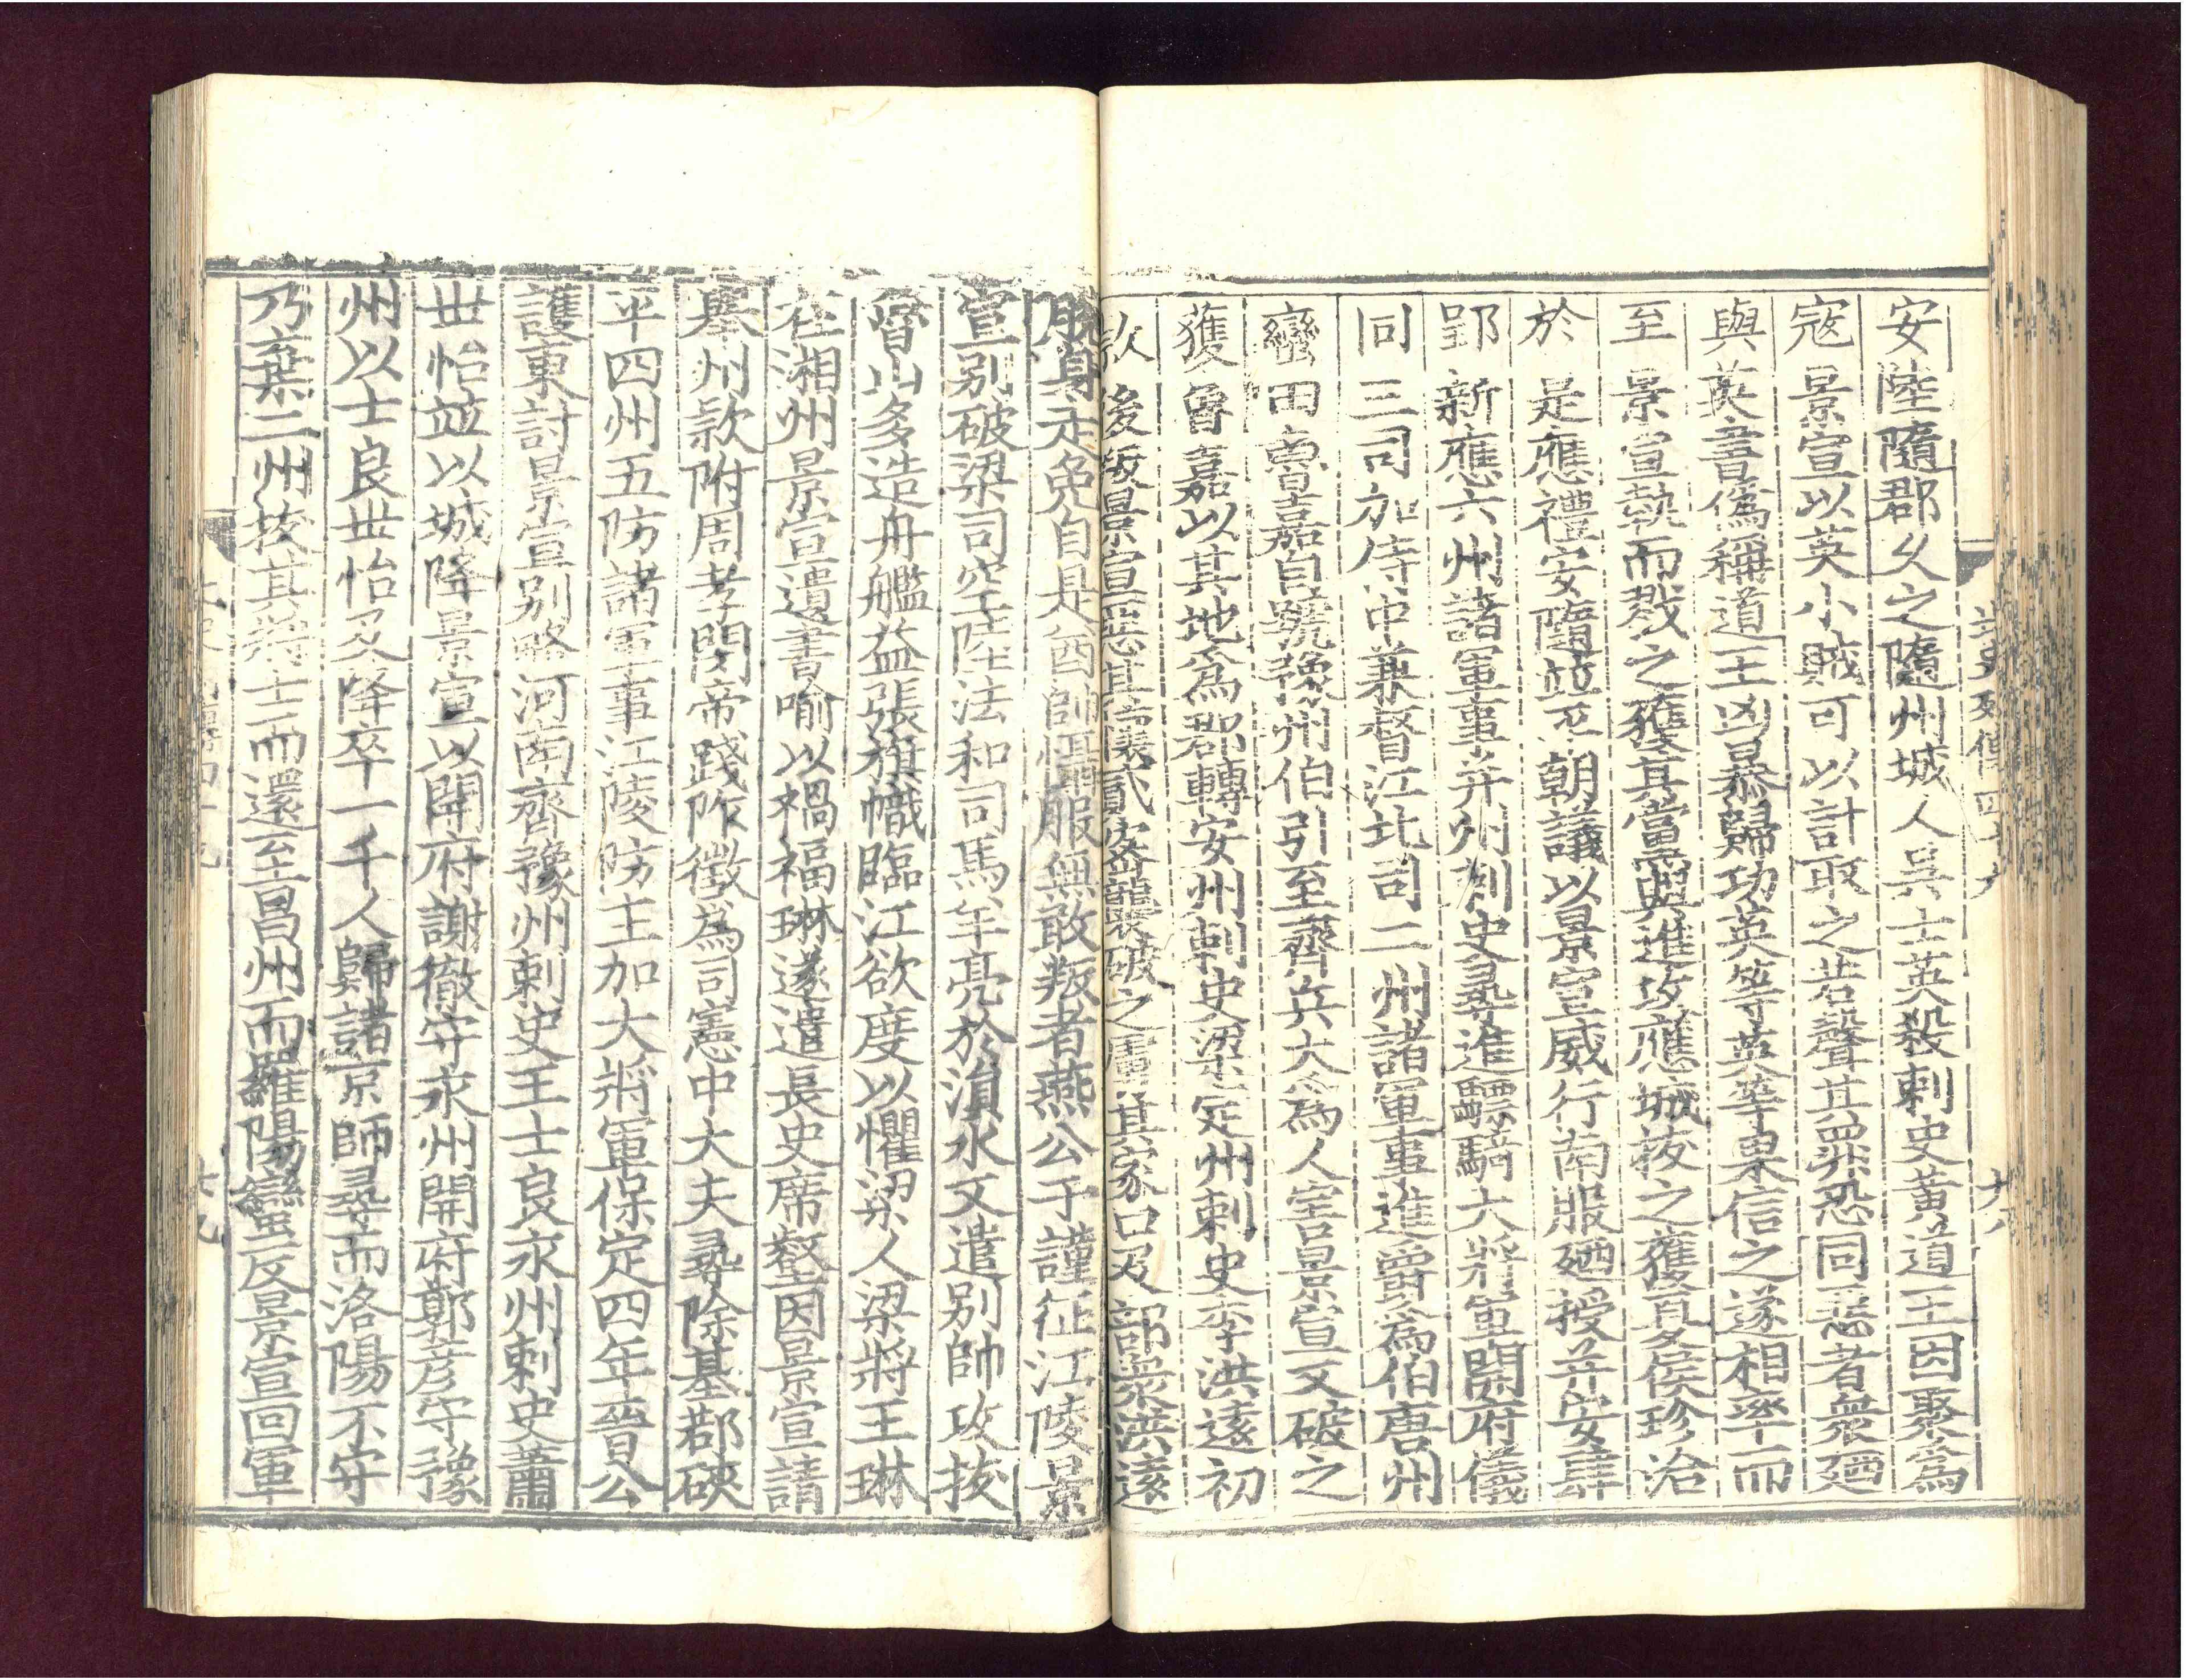 安陸隨郡久之隨州城人吳士英殺刺史黃道玉因聚爲
寇景宣以英小賊可以計取之若聲其罪恐同惡者衆廼
與英書僞稱道玉凶暴歸功英等英等果信之遂相率而
至景宣執而戮之獲其黨與進攻應城拔之獲夏侯珍洽
於是應禮安隨並平朝議以景宣威行南服廼授并安肆
郢新應六州諸軍事并州刺史尋進驃騎大將軍開府儀
同三司加侍中兼督江北司二州諸軍事進爵爲伯唐州
蠻田魯嘉自號豫州伯引至齊兵大爲人害景宣又破之
獲魯嘉以其地爲郡轉安州刺史梁定州刺史李洪遠初
款後叛景宣惡其儀貳密襲破之虜其家口及部衆洪遠
脫身走免自是酋帥慴服無敢叛者燕公于謹征江陵景
宣別破梁司空陸法和司馬羊亮於溳水又遣別帥攻拔
魯山多造舟艦益張旗幟臨江欲度以懼梁人梁將王琳
在湘州景宣遺書喻以禍福琳遂遣長史席壑因景宣請
舉州款附周孝閔帝踐阼徵爲司憲中大夫尋除基鄀硤
平四州五防諸軍事江陵防主加大將軍保定四年晉公
護東討景宣別略河南齊豫州刺史王士良永州刺史蕭
世怡並以城降景宣以開府謝徹守永州開府鄭彥守豫
州以士良世怡及降卒一千人歸諸京師尋而洛陽不守
乃棄二州拔其將士而還至昌州而羅陽蠻反景宣回軍
北史列傳四十九
十八
十九